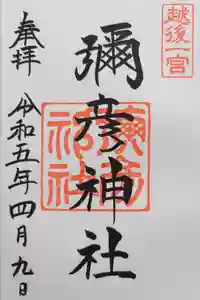 越後一宮
奉拝
彌彦神社
令和五年四月九日